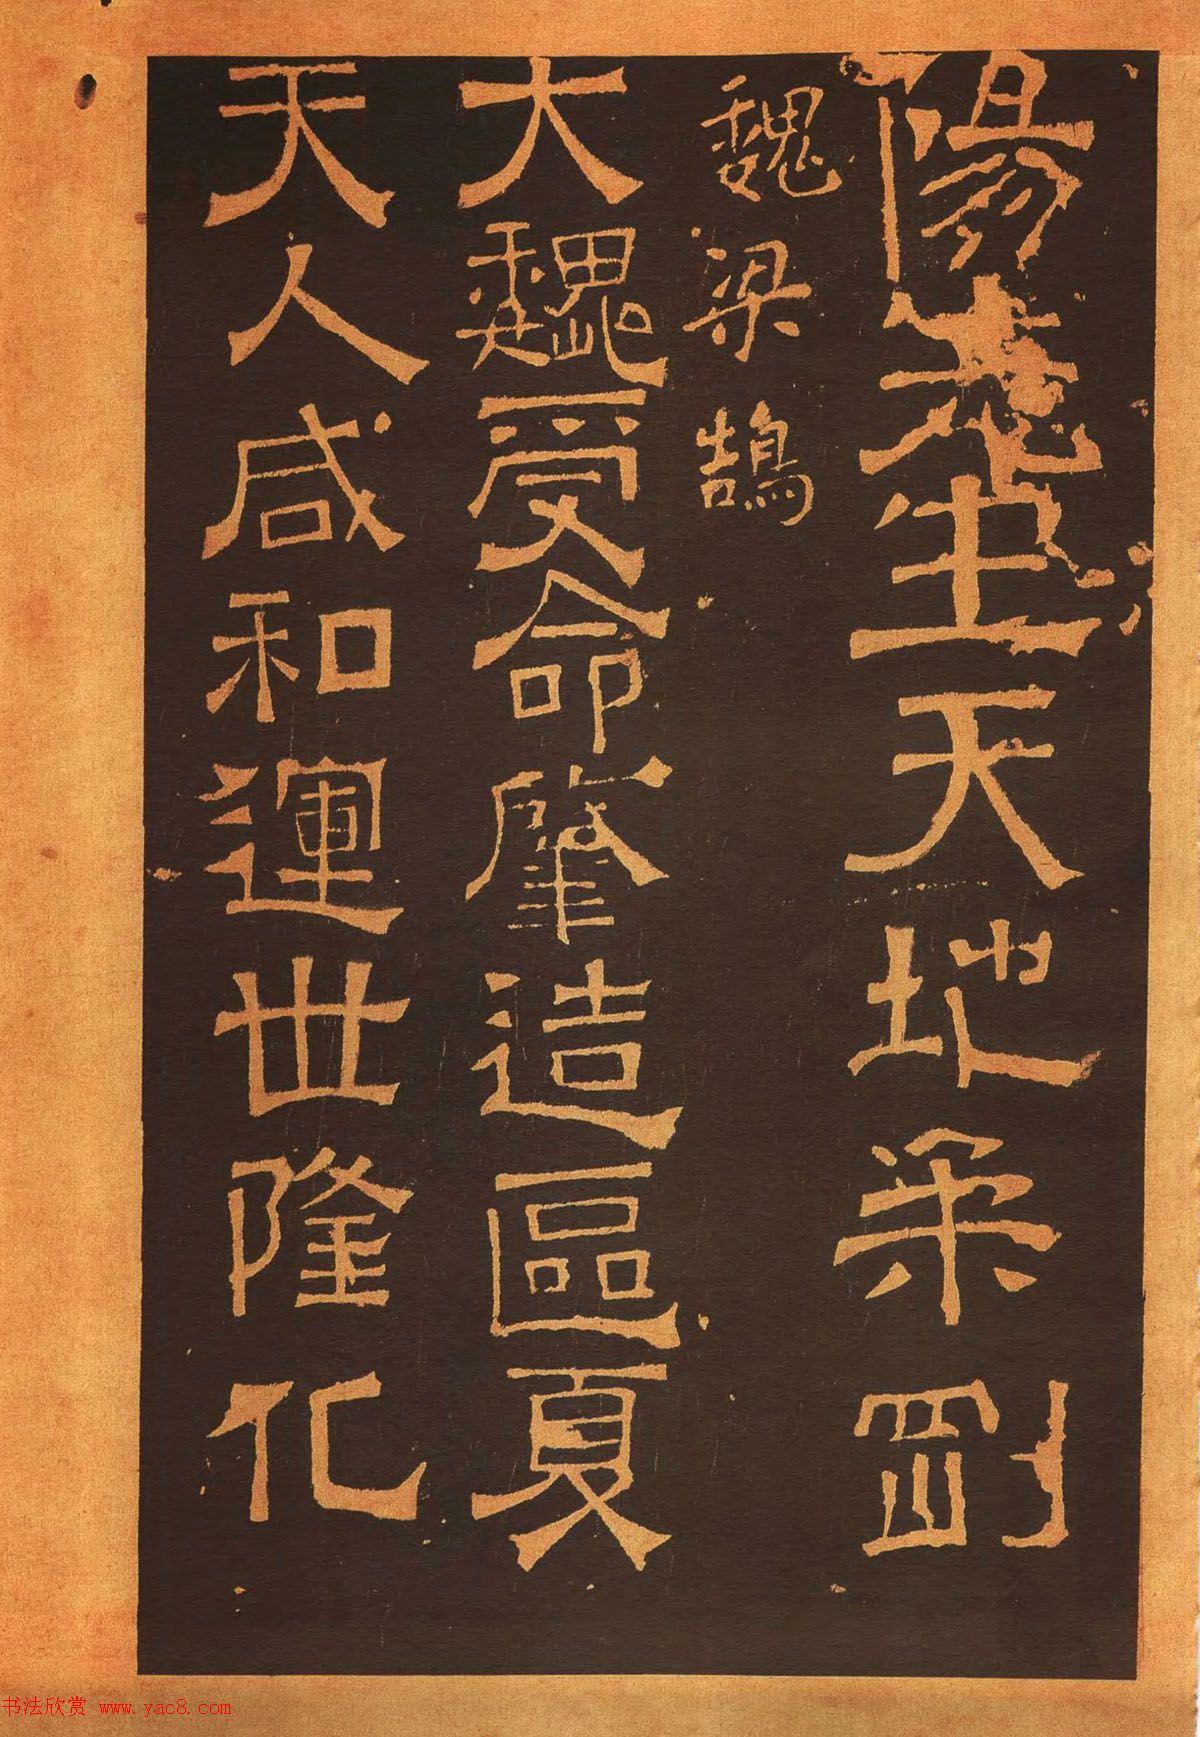 陽生天地柔剛
魏梁鵠
大魏受命肇造區夏
天人咸和運世隆化
书法欣赏 www.yac8.com